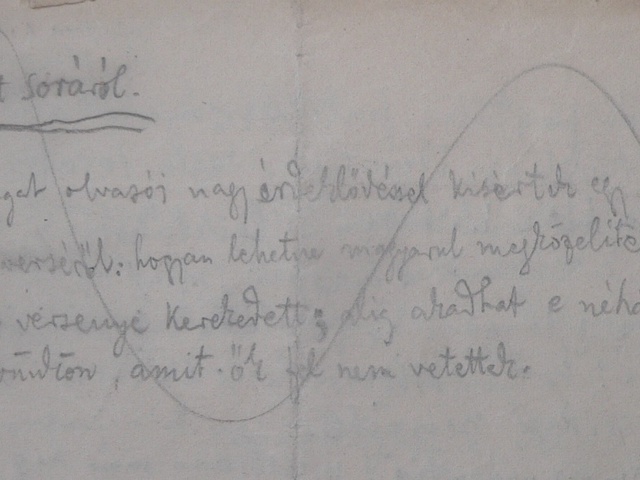 t soráról.
gat olvasói nagy érdeklődéssel kisérték egy
verséről: hogyan lehetne magyarul megközelíte
versenye kerekedett; alig akadhat e néhá
amit ők fel nem vetettek.